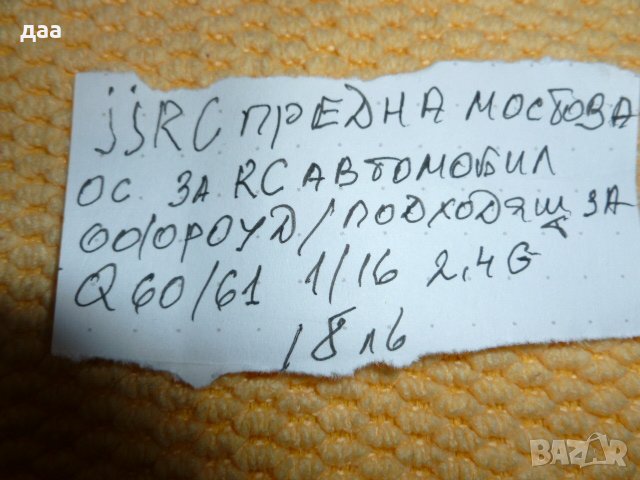 даа
jjRC ПРЕДНА МОСТОВА
ОС ЗА RC АВТОМОБИЛ
ОФФРОУД/ПОДХОДЯЩ ЗА
Q60/61 1/16 2,4G
18 лв
BAZAR